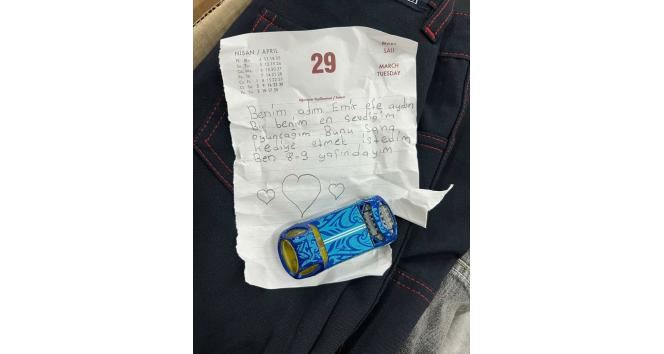 NİSAN / APRIL
29
SALI
MARCH
TUESDAY
Benim adım Emir efe aydın
Bir benim en sevdiğim
oyuncağım Bunu Sana
hediye etmek istedim
Ben 8-9 yaşındayım